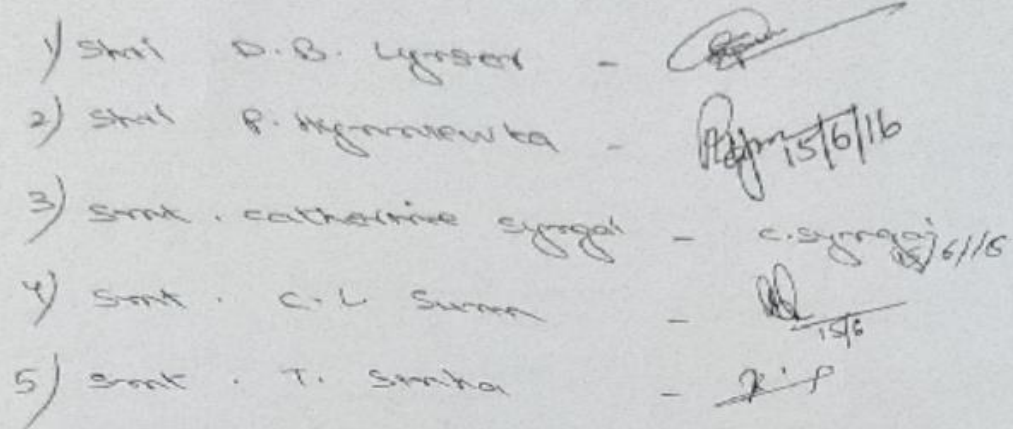 1) Shri D.B. Lyrser -
2) Shri P. Hynniewta - 15/6/16
3) Smt. Catherine Syngai - C. Syngai 15/6/16
4) Smt. C.L Sunn - 15/6
5) Smt. T. Sinha -